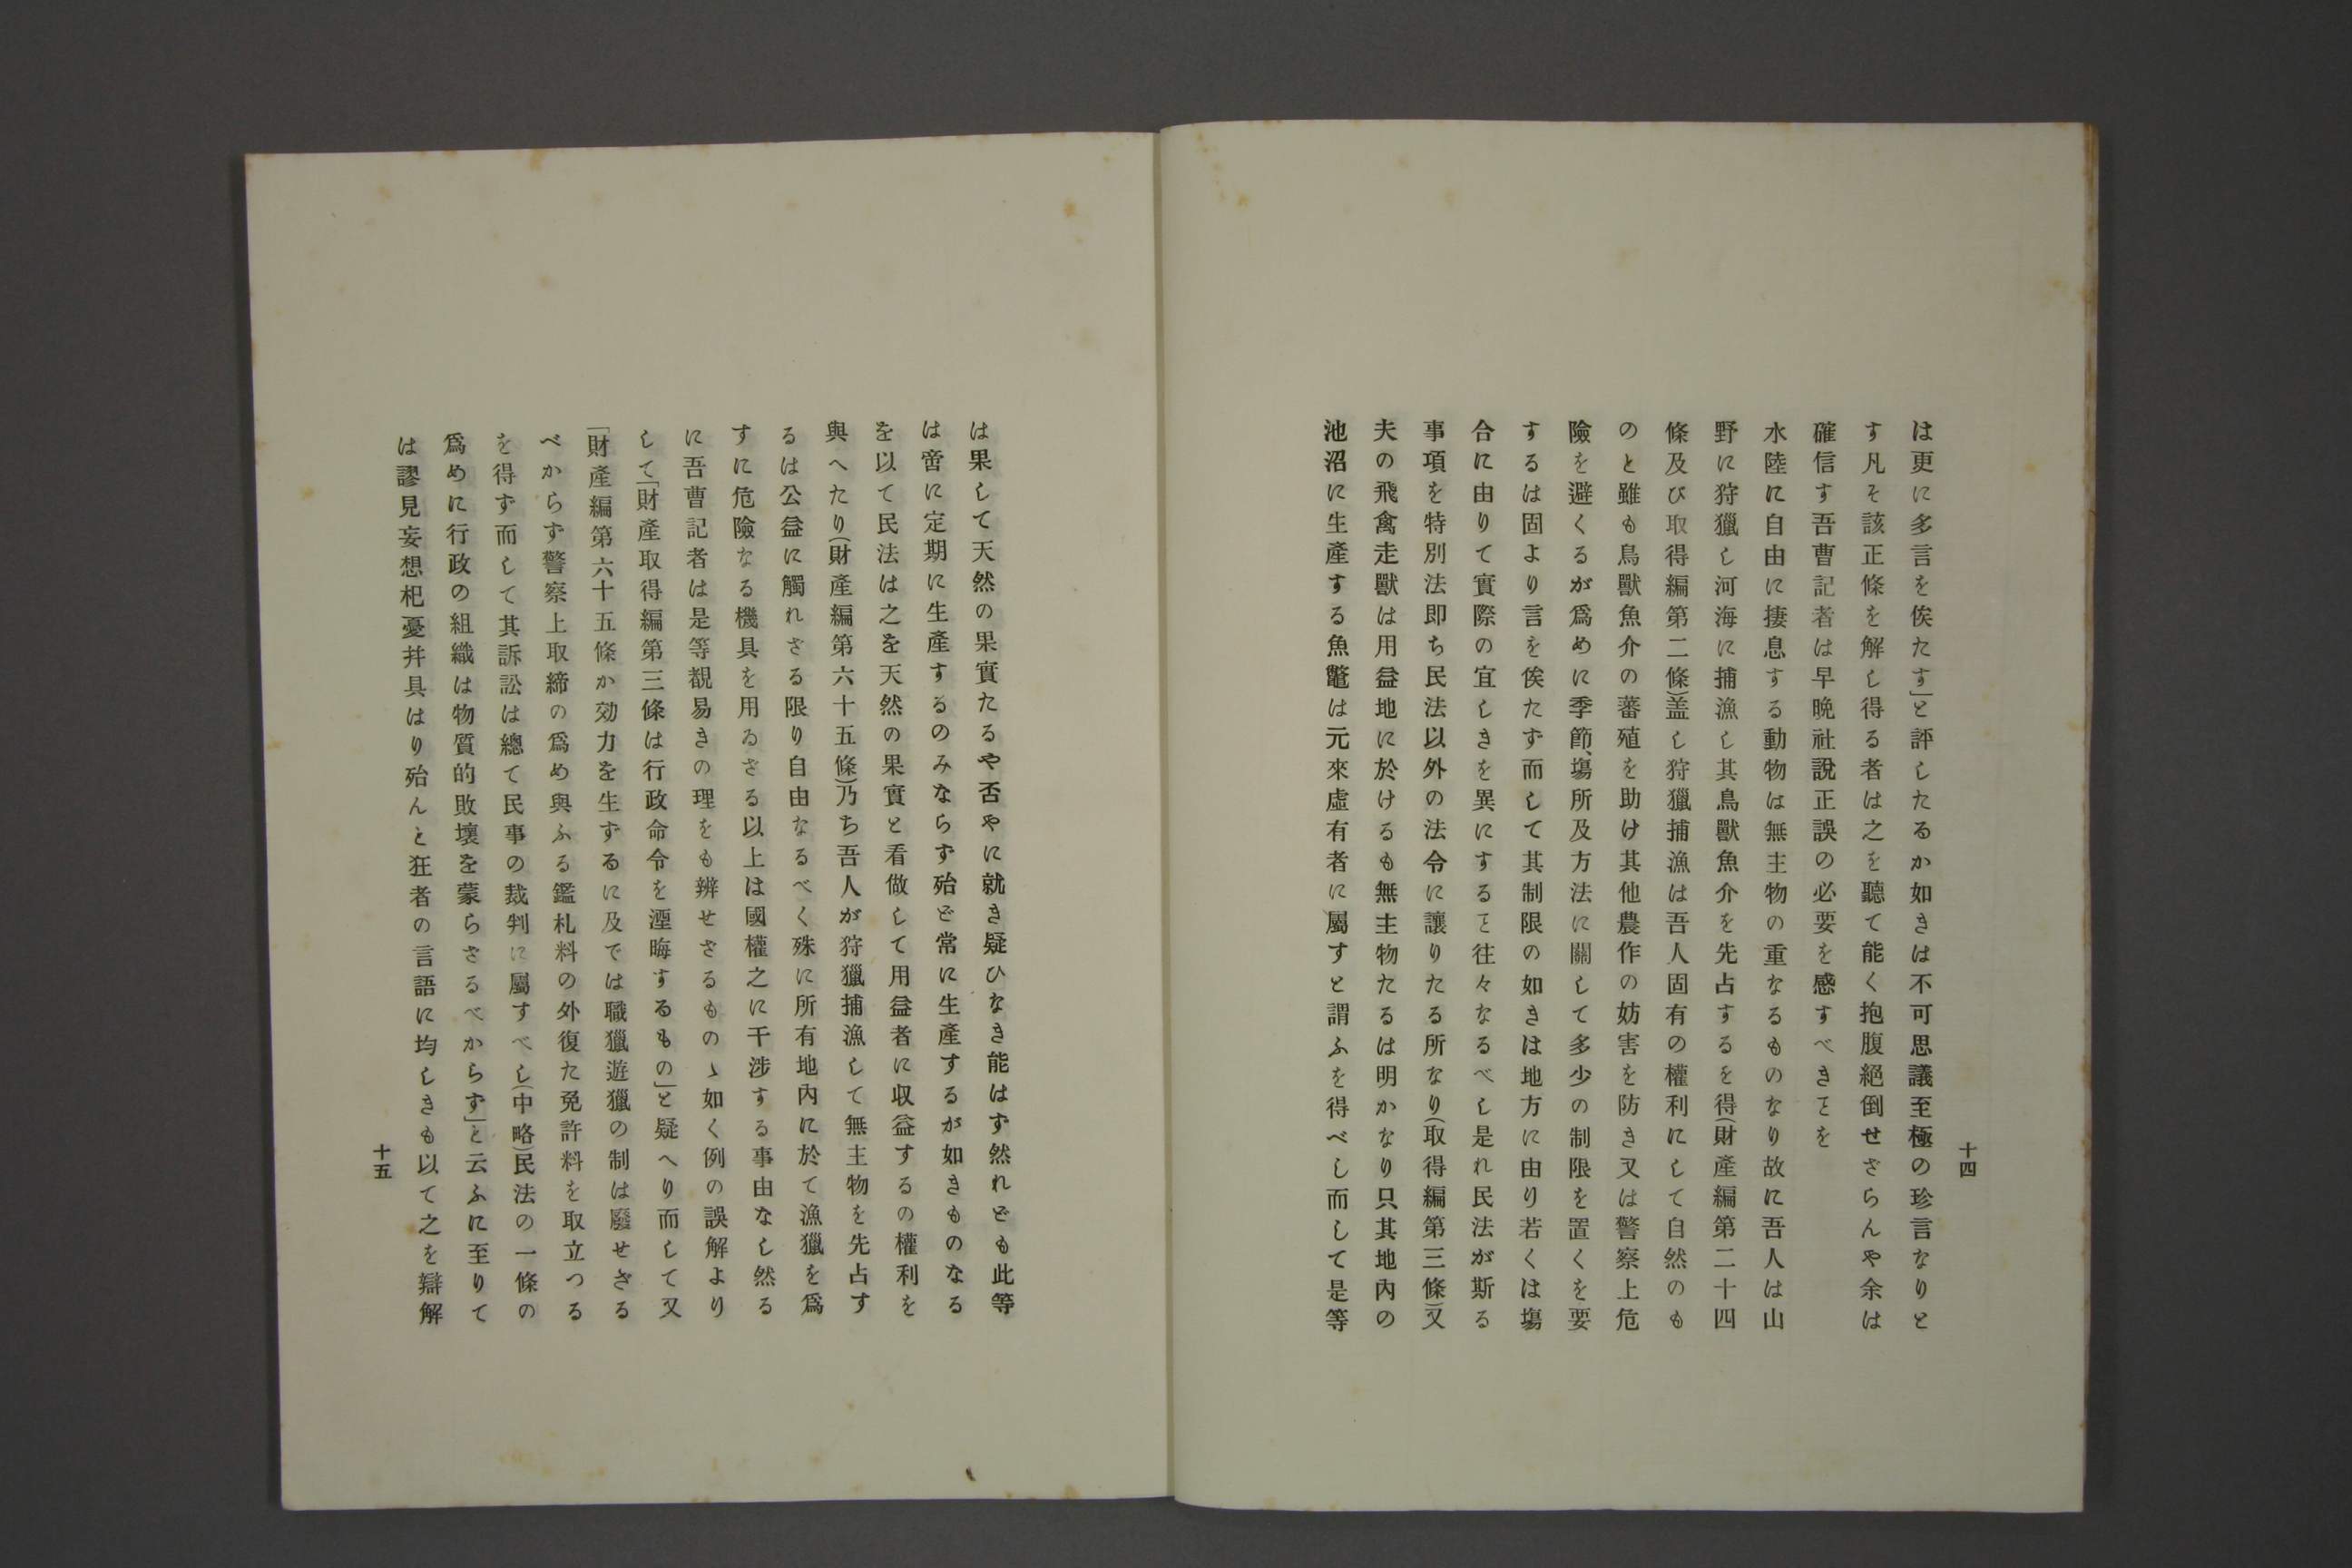 十四
は更に多言を俟たす」と評したるか如きは不可思議至極の珍言なりと
す凡そ該正條を解し得る者は之を聽て能く抱腹絕倒せさらんや余は
確信す吾曹記者は早晩社說正誤の必要を感すべきヿを
水陸に自由に捿息する動物は無主物の重なるものなり故に吾人は山
野に狩獵し河海に捕漁し其鳥獸魚介を先占するを得(財產編第二十四
條及び取得編第二條)盖し狩獵捕漁は吾人固有の權利にして自然のも
のと雖も鳥獸魚介の蕃殖を助け其他農作の妨害を防き又は警察上危
險を避くるが爲めに季節、塲所及方法に關して多少の制限を置くを要
するは固より言を俟たず而して其制限の如きは地方に由り若くは塲
合に由りて實際の宜しきを異にするヿ往々なるべし是れ民法が斯る
事項を特別法即ち民法以外の法令に讓りたる所なり(取得編第三條)又
夫の飛禽走獸は用益地に於けるも無主物たるは明かなり只其地內の
池沼に生產する魚鼈は元來虛有者に屬すと謂ふを得べし而して是等
は果して天然の果實たるや否やに就き疑ひなき能はず然れども此等
は啻に定期に生產するのみならず殆ど常に生產するが如きものなる
を以て民法は之を天然の果實と看做して用益者に収益するの權利を
與へたり(財產編第六十五條)乃ち吾人が狩獵捕漁して無主物を先占す
るは公益に觸れざる限り自由なるべく殊に所有地內に於て漁獵を爲
すに危險なる機具を用ゐさる以上は國權之に干涉する事由なし然る
に吾曹記者は是等覩易きの理をも辨せさるものゝ如く例の誤解より
して「財產取得編第三條は行政命令を湮晦するもの」と疑へり而して又
「財產編第六十五條か効力を生ずるに及では職獵遊獵の制は廢せざる
べからず警察上取締の爲め與ふる鑑札料の外復た免許料を取立つる
を得ず而して其訴訟は總て民事の裁判に屬すべし(中略)民法の一條の
爲めに行政の組織は物質的敗壞を蒙らさるべからず」と云ふに至りて
は謬見妄想杞憂幷具はり殆んと狂者の言語に均しきも以て之を辯解
十五